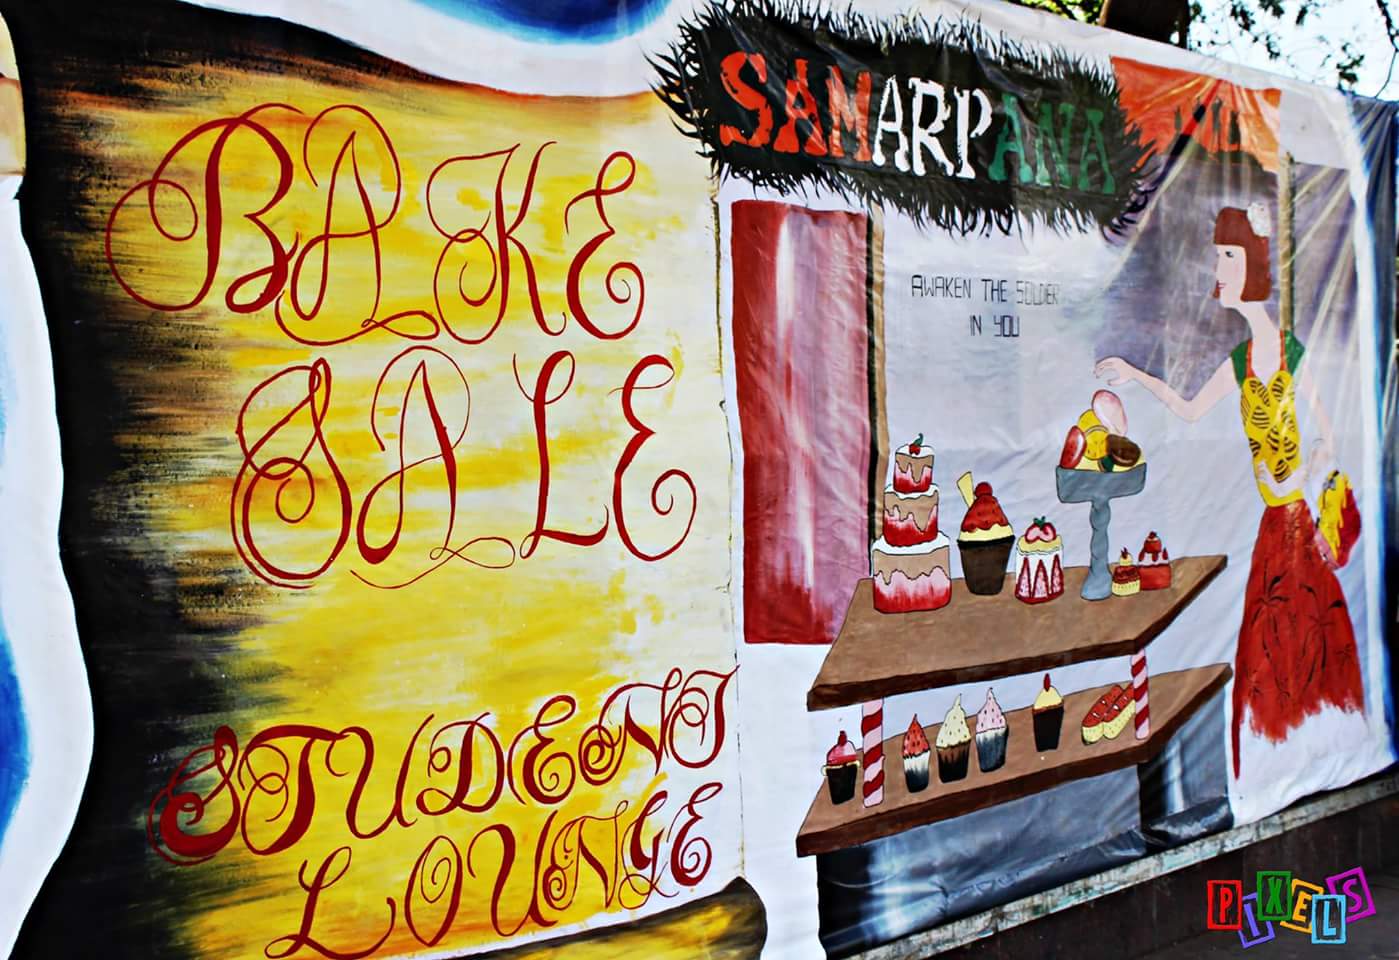 BAKE
SALE
STUDENT
LOUNGE
SAMARPANA
AWAKEN THE SOLDIER
IN YOU
PIXELS